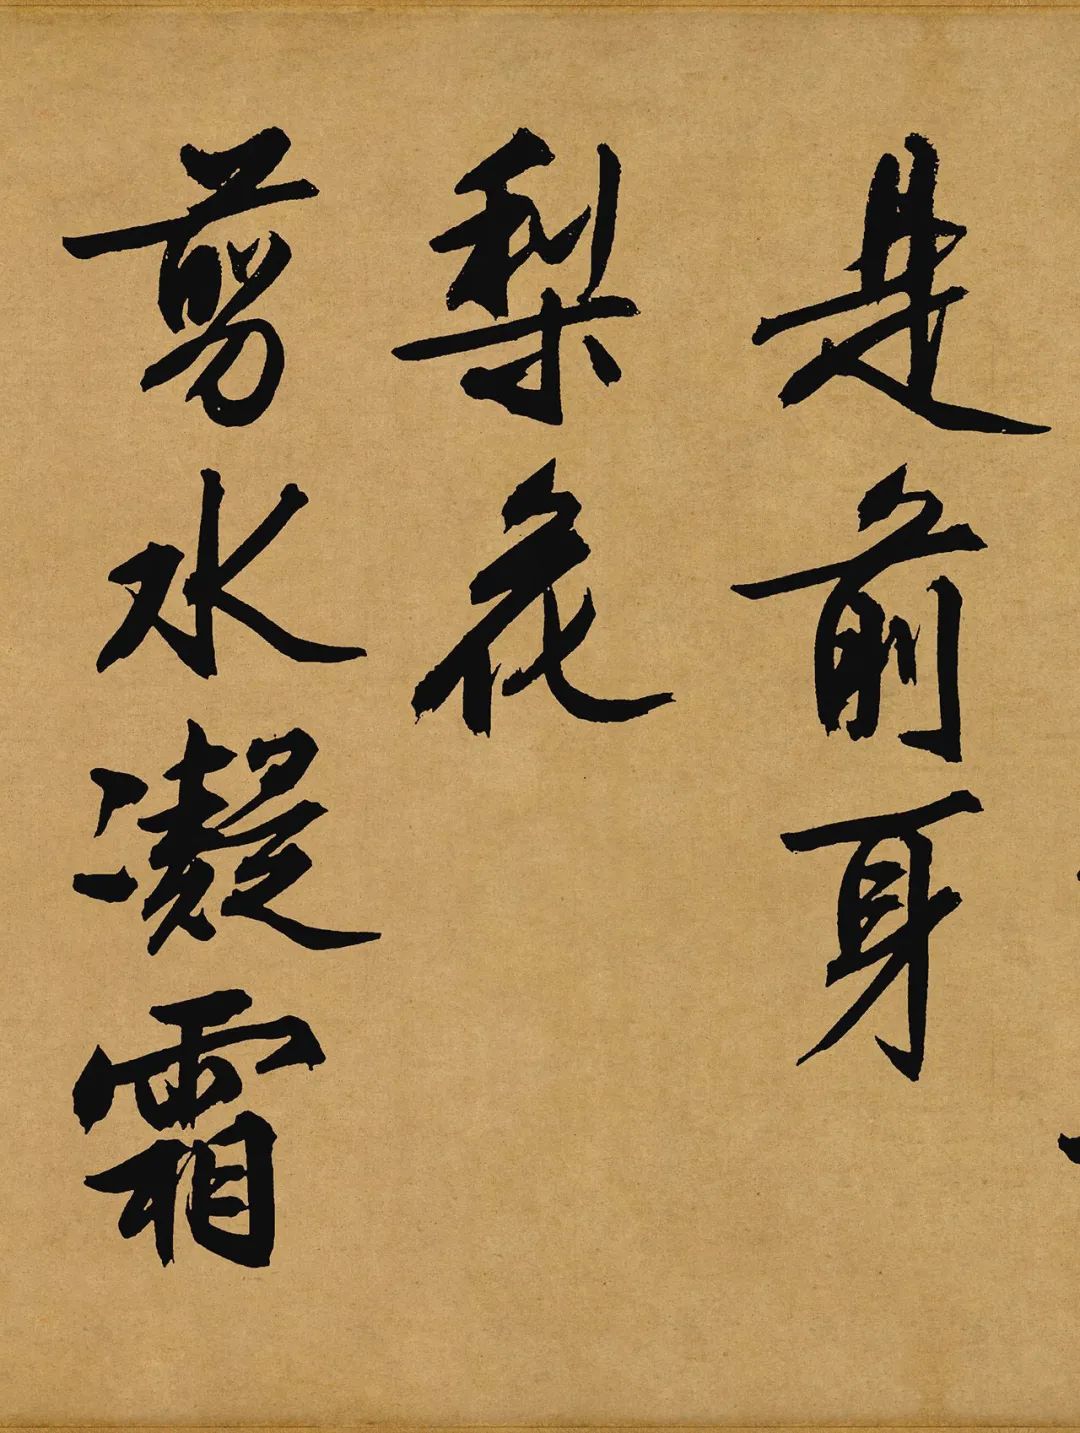 是前身
梨花
剪水凝霜